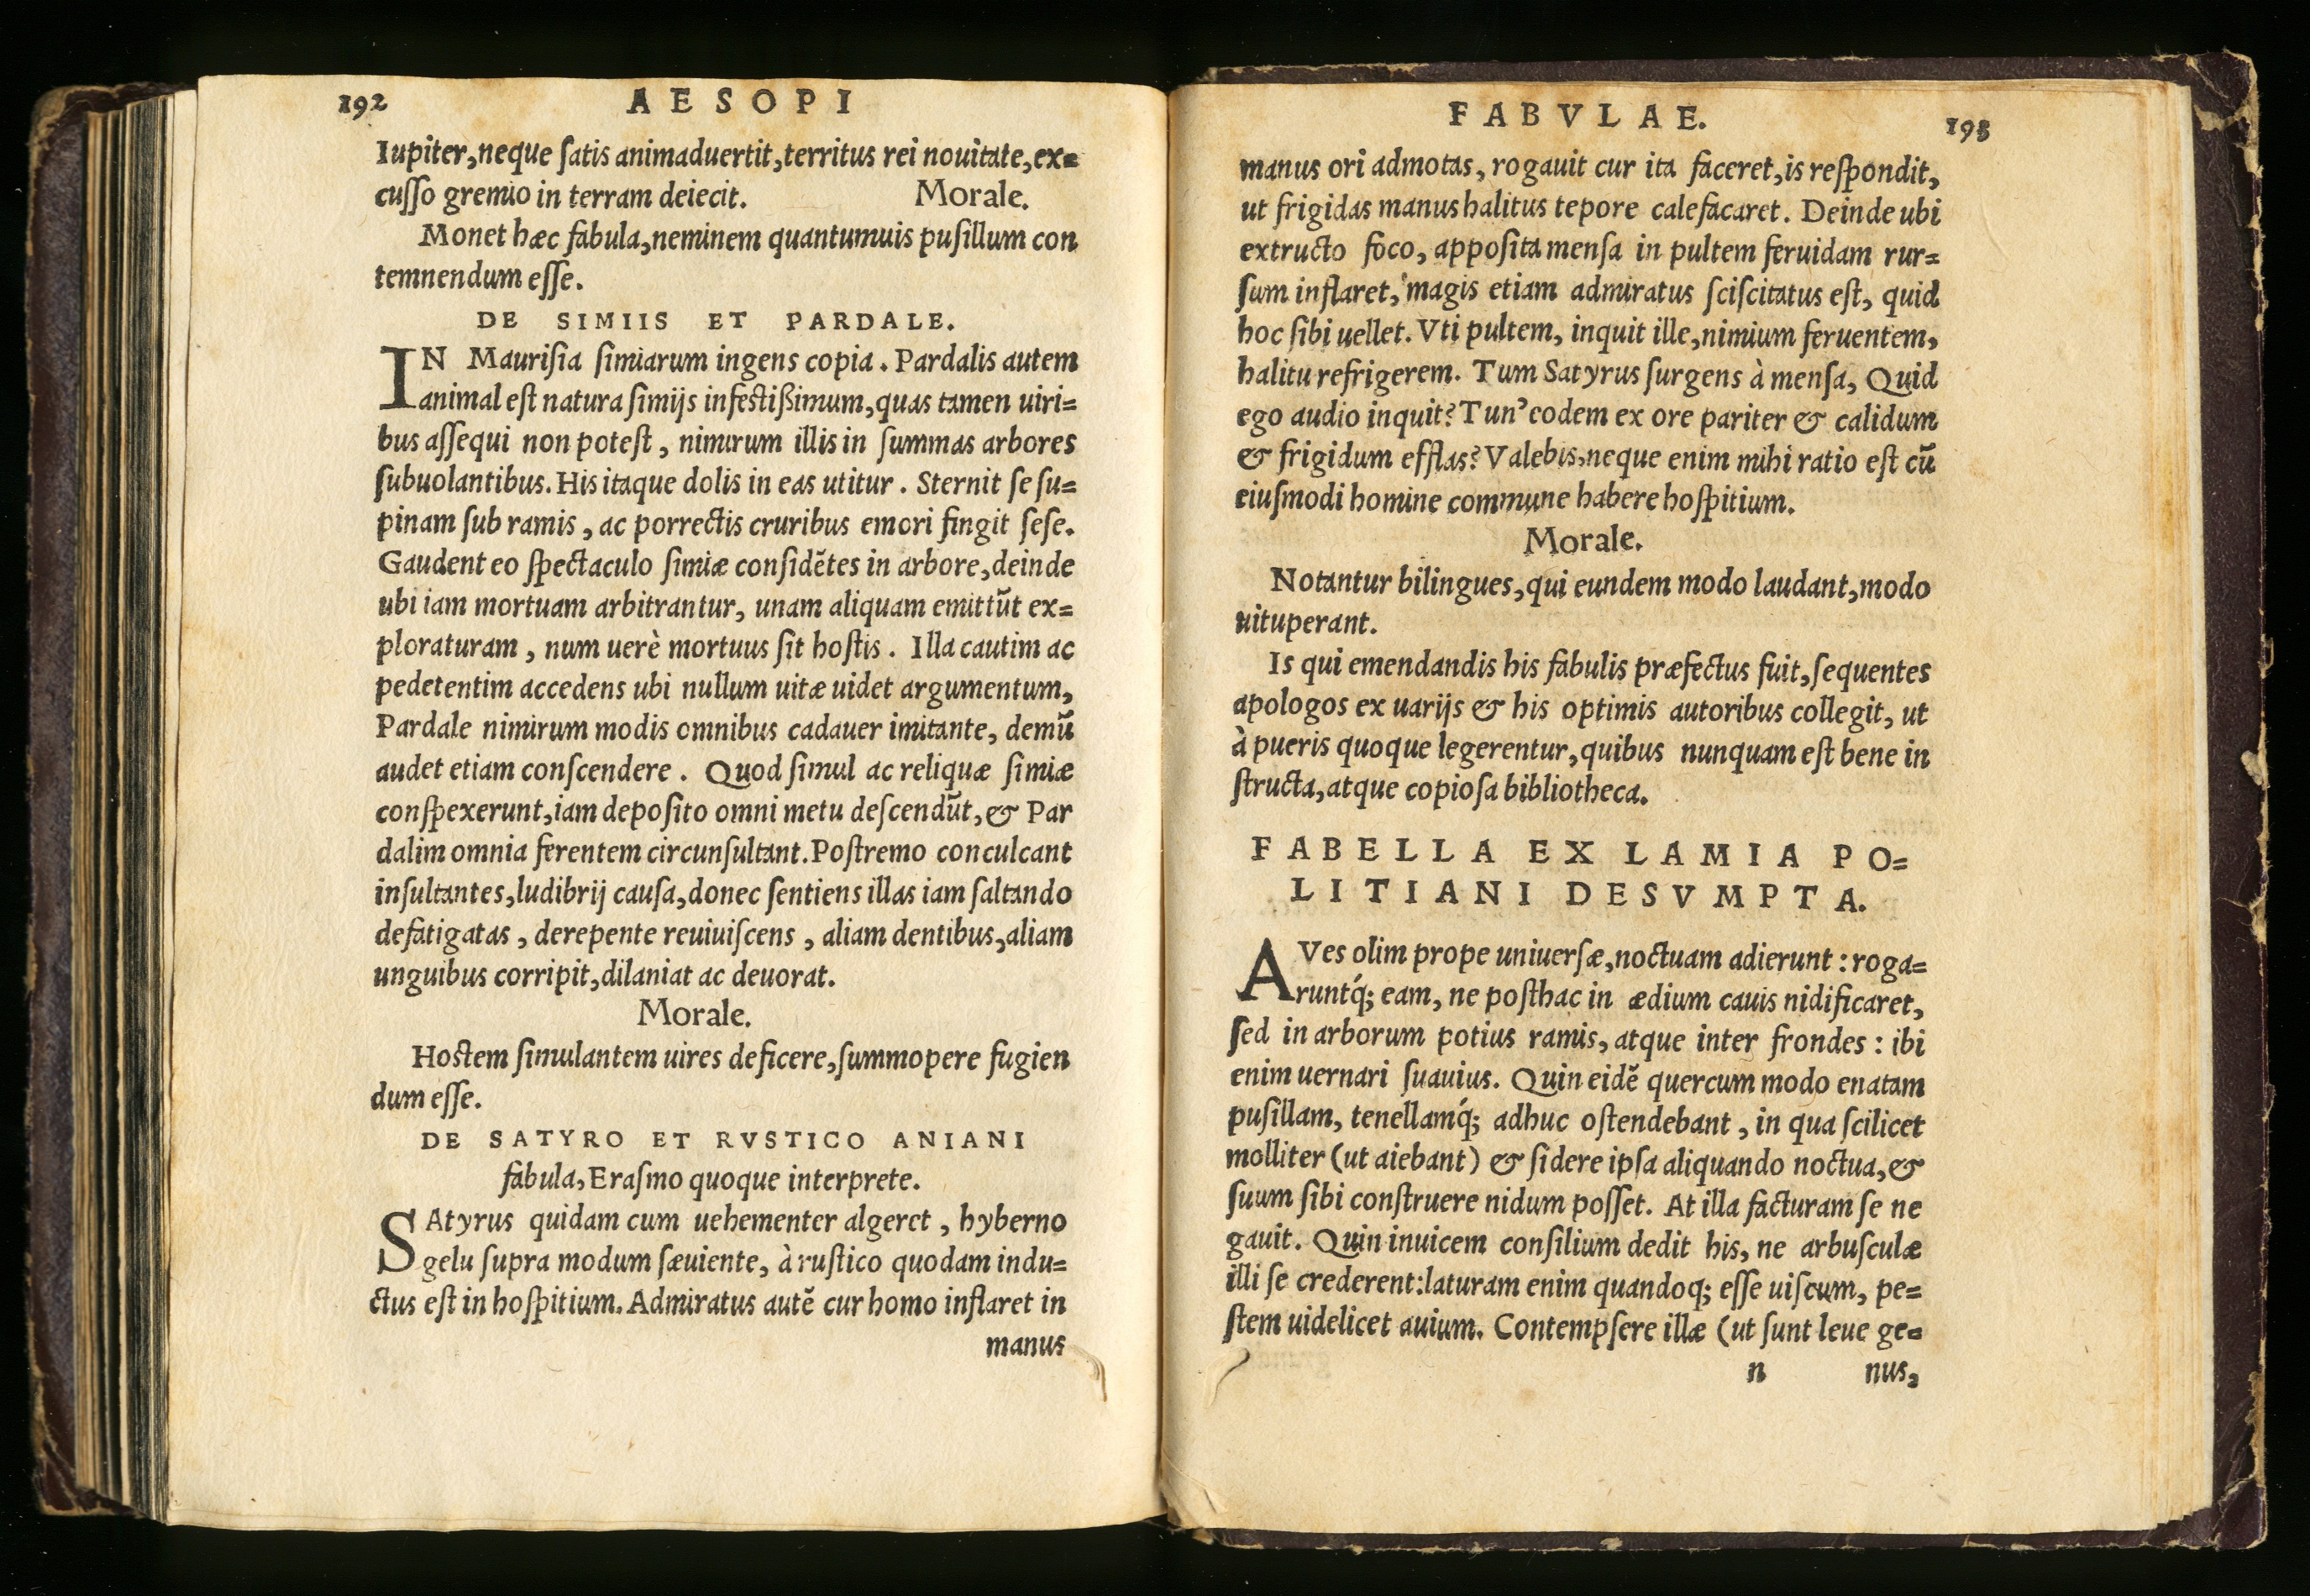 192
AESOPI
Iupiter,neque ſatis animaduertit,territus rei nouitate,ex=
cuſſo gremio in terram deiecit. Morale.
Monet hæc fabula,neminem quantumuis puſillum con
temnendum eſſe.
DE SIMIIS ET PARDALE.
IN Mauriſia ſimiarum ingens copia. Pardalis autem
animal eſt natura ſimijs infeſtißimum,quas tamen uiri=
bus aſſequi non poteſt, nimirum illis in ſummas arbores
ſubuolantibus. His itaque dolis in eas utitur. Sternit ſe ſu=
pinam ſub ramis, ac porrectis cruribus emori fingit ſeſe.
Gaudent eo ſpectaculo ſimiæ conſidẽtes in arbore,deinde
ubi iam mortuam arbitrantur, unam aliquam emittũt ex=
ploraturam, num uerè mortuus ſit hoſtis. Illa cautim ac
pedetentim accedens ubi nullum uitæ uidet argumentum,
Pardale nimirum modis omnibus cadauer imitante, demũ
audet etiam conſcendere. Quod ſimul ac reliquæ ſimiæ
conſpexerunt,iam depoſito omni metu deſcendũt,& Par
dalim omnia ferentem circunſultant. Poſtremo conculcant
inſultantes,ludibrij cauſa,donec ſentiens illas iam ſaltando
defatigatas, derepente reuiuiſcens, aliam dentibus,aliam
unguibus corripit,dilaniat ac deuorat.
Morale.
Hoſtem ſimulantem uires deficere,ſummopere fugien
dum eſſe.
DE SATYRO ET RVSTICO ANIANI
fabula, Eraſmo quoque interprete.
SAtyrus quidam cum uehementer algeret, hyberno
gelu ſupra modum ſæuiente, à ruſtico quodam indu=
ctus eſt in hoſpitium. Admiratus autẽ cur homo inflaret in
manus
FABVLAE.
193
manus ori admotas, rogauit cur ita faceret,is reſpondit,
ut frigidas manus halitus tepore calefacaret. Deinde ubi
extructo foco, appoſita menſa in pultem feruidam rur=
ſum inflaret, magis etiam admiratus ſciſcitatus eſt, quid
hoc ſibi uellet. Vti pultem, inquit ille,nimium feruentem,
halitu refrigerem. Tum Satyrus ſurgens à menſa, Quid
ego audio inquit? Tun' eodem ex ore pariter & calidum
& frigidum efflas? Valebis,neque enim mihi ratio eſt cũ
eiuſmodi homine commune habere hoſpitium.
Morale.
Notantur bilingues,qui eundem modo laudant,modo
uituperant.
Is qui emendandis his fabulis præfectus fuit,ſequentes
apologos ex uarijs & his optimis autoribus collegit, ut
à pueris quoque legerentur,quibus nunquam eſt bene in
ſtructa,atque copioſa bibliotheca.
FABELLA EX LAMIA PO=
LITIANI DESVMPTA.
AVes olim prope uniuerſæ,noctuam adierunt: roga=
runtq́; eam, ne poſthac in ædium cauis nidificaret,
ſed in arborum potius ramis, atque inter frondes: ibi
enim uernari ſuauius. Quin eidẽ quercum modo enatam
puſillam, tenellamq́; adhuc oſtendebant, in qua ſcilicet
molliter (ut aiebant) & ſidere ipſa aliquando noctua,&
ſuum ſibi conſtruere nidum poſſet. At illa facturam ſe ne
gauit. Quin inuicem conſilium dedit his, ne arbuſculæ
illi ſe crederent: laturam enim quandoq; eſſe uiſcum, pe=
ſtem uidelicet auium. Contempſere illæ (ut ſunt leue ge=
n nus,